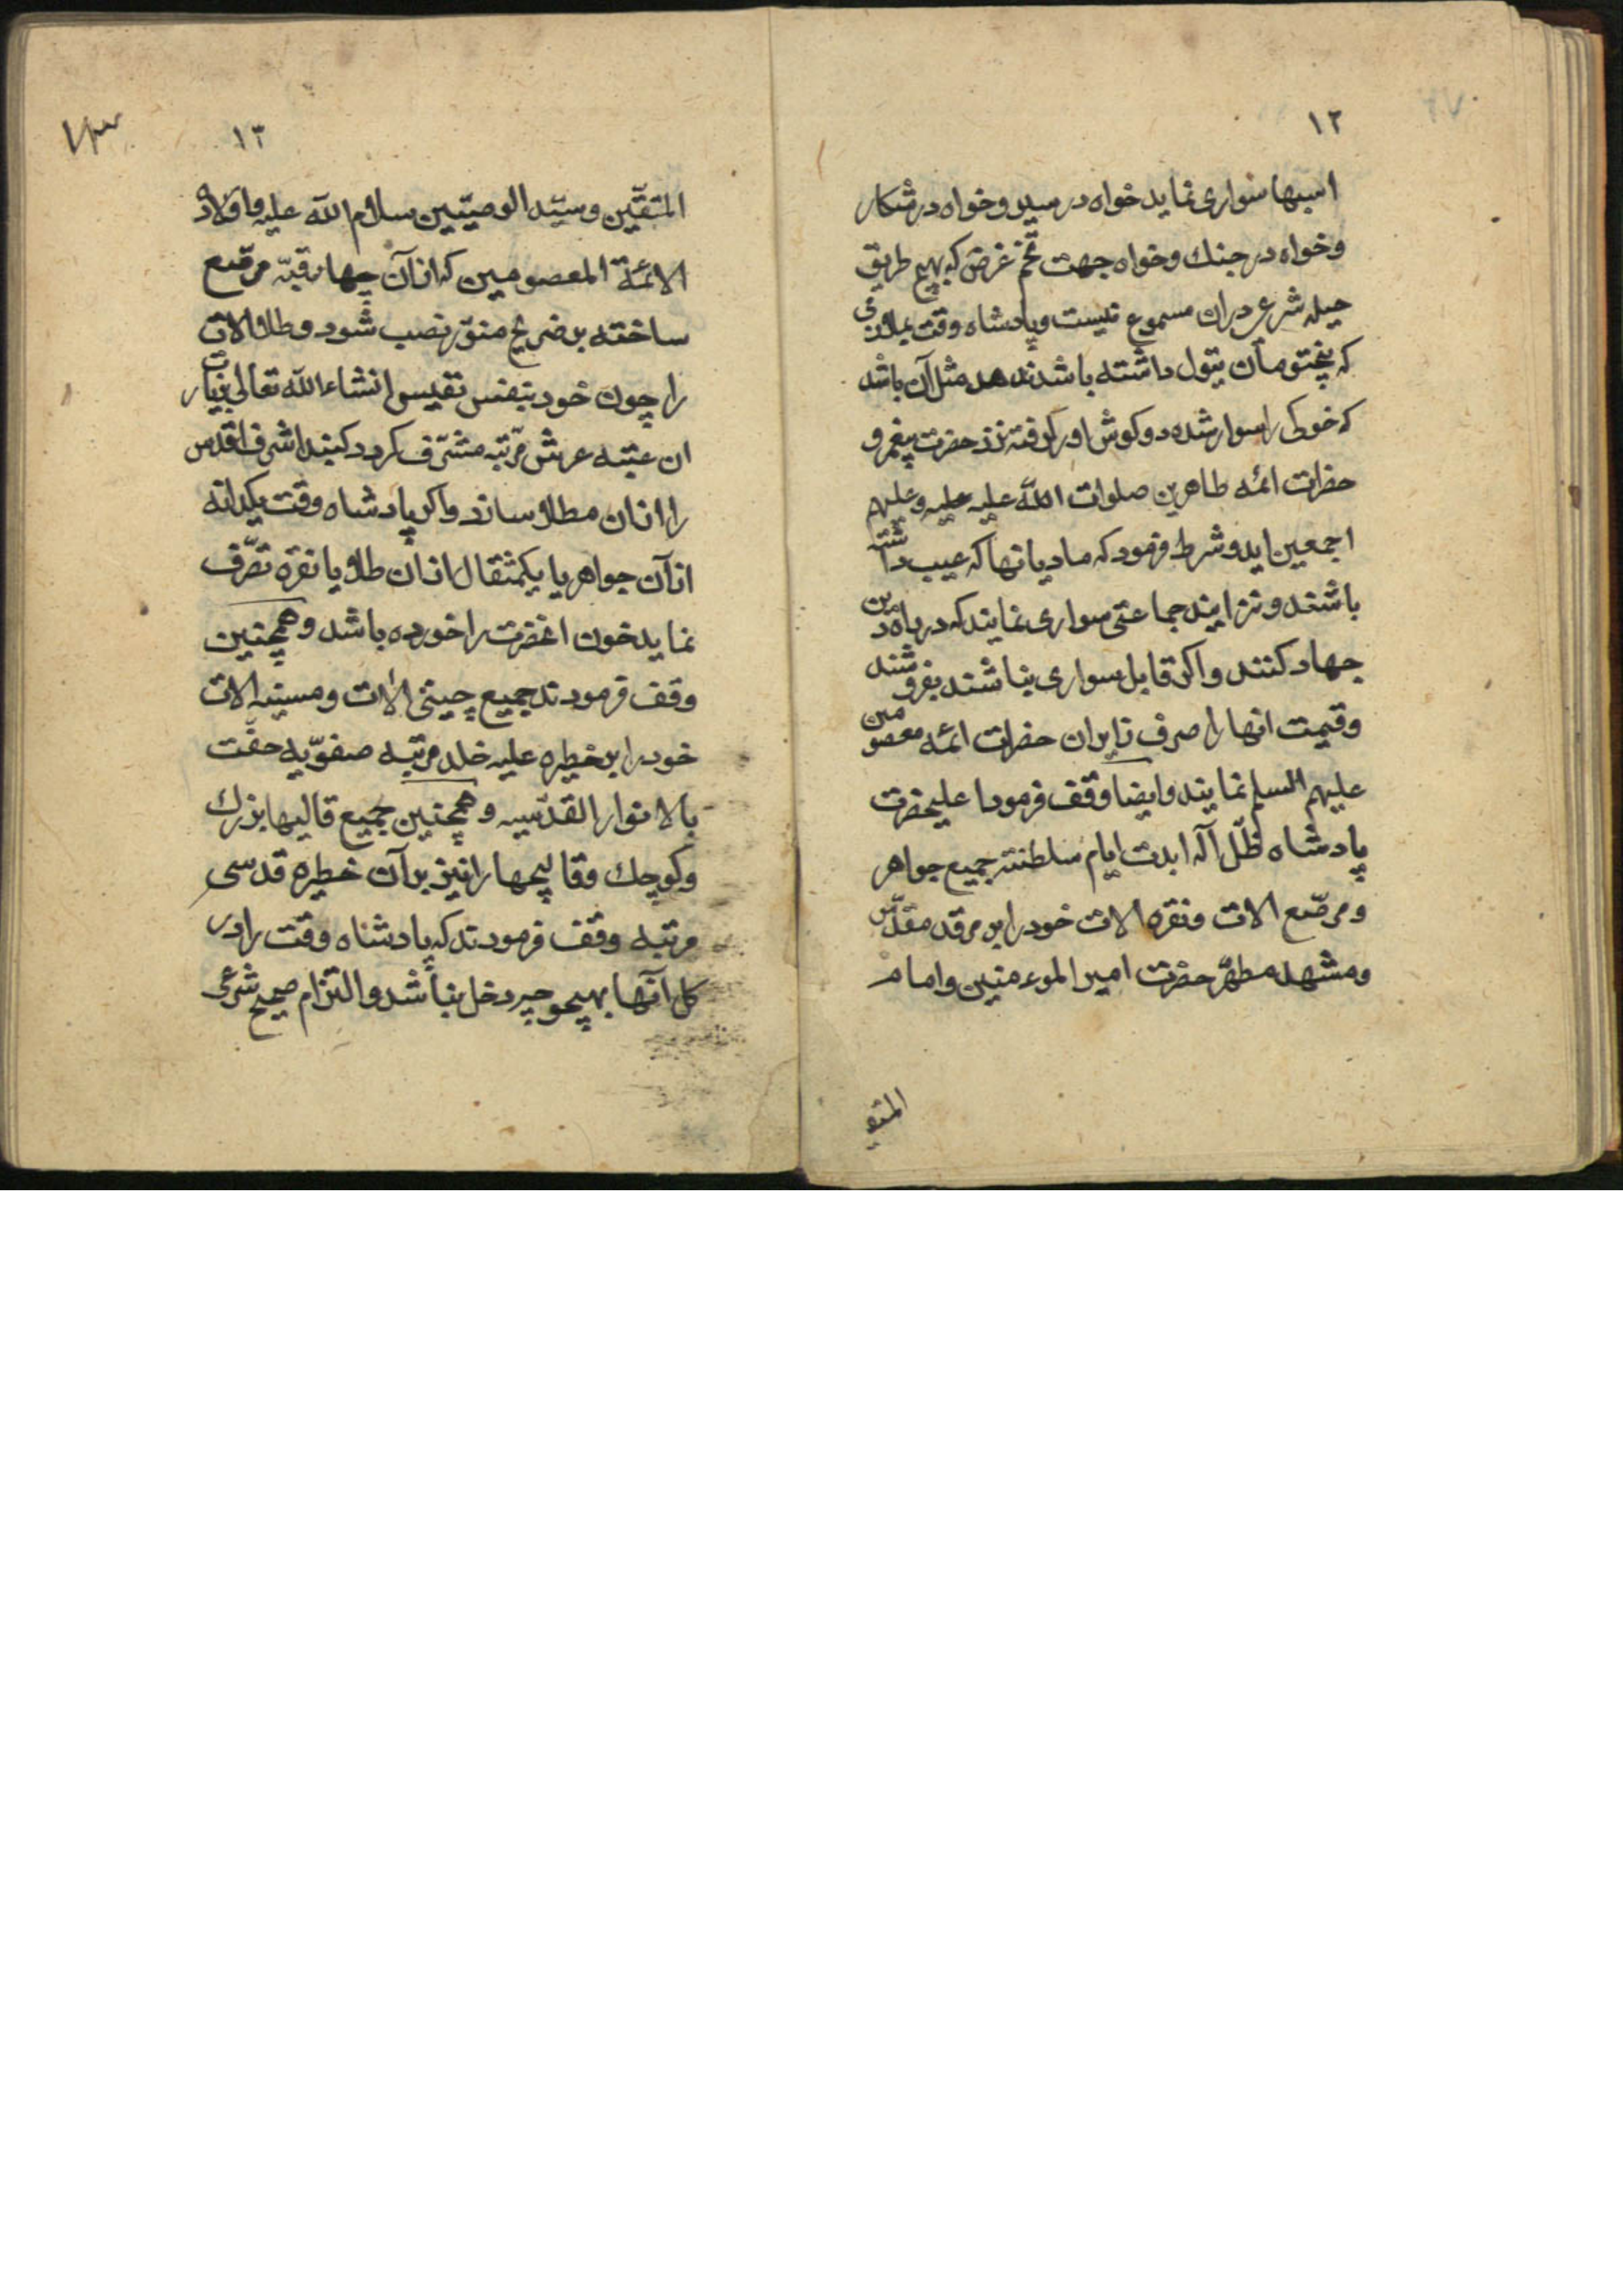 ١٢
اسبها سواری نماید خواه در سیر و خواه در شکار
و خواه در جنك و خواه جهت تخم غرض که بهیچ طریق
حیله شرعی دران مسموع نیست و پادشاه وقت بملازمی
که یتول داشته باشد ندهد مثل آن باشد
که خوکی را سوار شده دو کوش او را کرفته نزد حضرت پیغمبر و
حضرات ائمه طاهرین صلوات الله علیه علیه و علیهم
اجمعین اید و شرط فرمود که مادیانها که عیب داشته
باشند و نزایند جماعتی سواری نمایند که در راه دین
جهاد کنند و اکر قابل سواری نباشند بفروشند
و قیمت انها را صرف زایران حضرات ائمه معصومین
علیهم السلم نمایند و ایضا وقف فرمود اعلیحضرت
پادشاه ظلّ آله ابدت ایام سلطنته جمیع جواهر
و مرصّع الات و نقره الات خود را بر مرقد مقدّس
و مشهد مطهّر حضرت امیر الموءمنین و امام
المتقین
١٣
١٣
المتقّین و سیّد الوصیّیین سلام الله علیه و اولاده
الائمّة المعصومین که از آن چهار قبّه مرصّع
ساخته بر ضریح منوّر نصب شود و طلا الات
را چون خود بنفس نفیس انشاء الله تعالی بزیارت
ان عتبه عرش مرتبه مشرّف کردد کنبد اشرف اقدس
را از ان مطلا سازد و اکر پادشاه وقت یکدانه
از آن جواهر یا یکمثقال از ان طلا و یا نقره تصرّف
نماید خون انحضرت را خورده باشد و همچنین
وقف فرمودند جمیع چینی الات و مسینه الات
خود را بر خطیره علیه خلد مرتبه صفوّیه حفّت
بالانوار القدّسیه و همچنین جمیع قالیها بزرك
و کوچك و قالیچها را نیز بر آن خطیره قدسی
مرتبه وقف فرمودند که پادشاه وقت را در
کل آنها بهیچوجه دخل نباشد و التزام صحیح شرعی